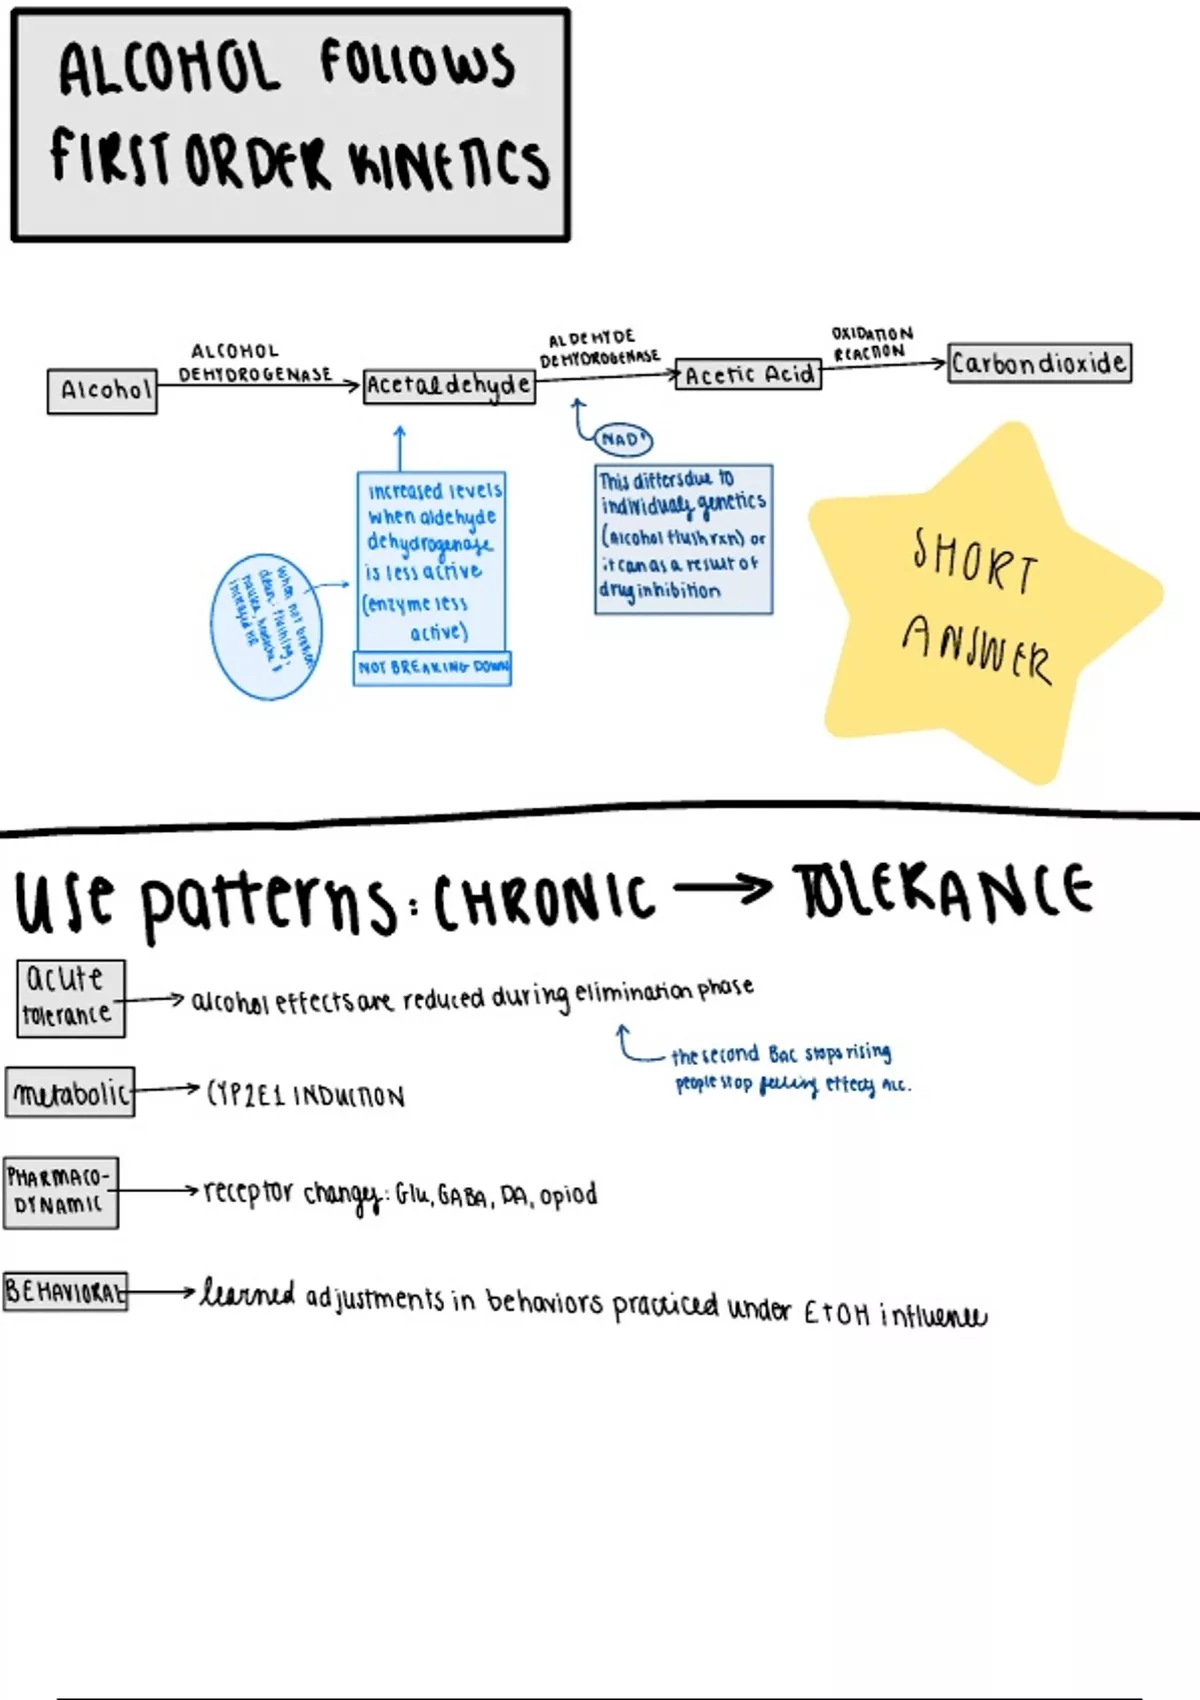 ALCOHOL FOLLOWS
FIRST ORDER KINETICS
Alcohol
ALCOHOL
DEHYDROGENASE
Acetaldehyde
ALDEHYDE
DEHYDROGENASE
Acetic Acid
OXIDATION
REACTION
Carbondioxide
NAD+
increased levels
when aldehyde
dehydrogenase
is less active
(enzyme less
active)
NOT BREAKING DOWN
when not broken
down: flushing,
nausea, headache &
increased HR
This differs due to
individuals genetics
(Alcohol flush rxn) or
it can as a result of
drug inhibition
SHORT
ANSWER
Use patterns: CHRONIC → TOLERANCE
acute
tolerance
alcohol effects are reduced during elimination phase
the second BAC stops rising
people stop feeling effects
metabolic
CYP2E1 INDUCTION
PHARMACO-
DYNAMIC
receptor changes: Glu, GABA, DA, opiod
BEHAVIORAL
learned adjustments in behaviors practiced under EtOH influence